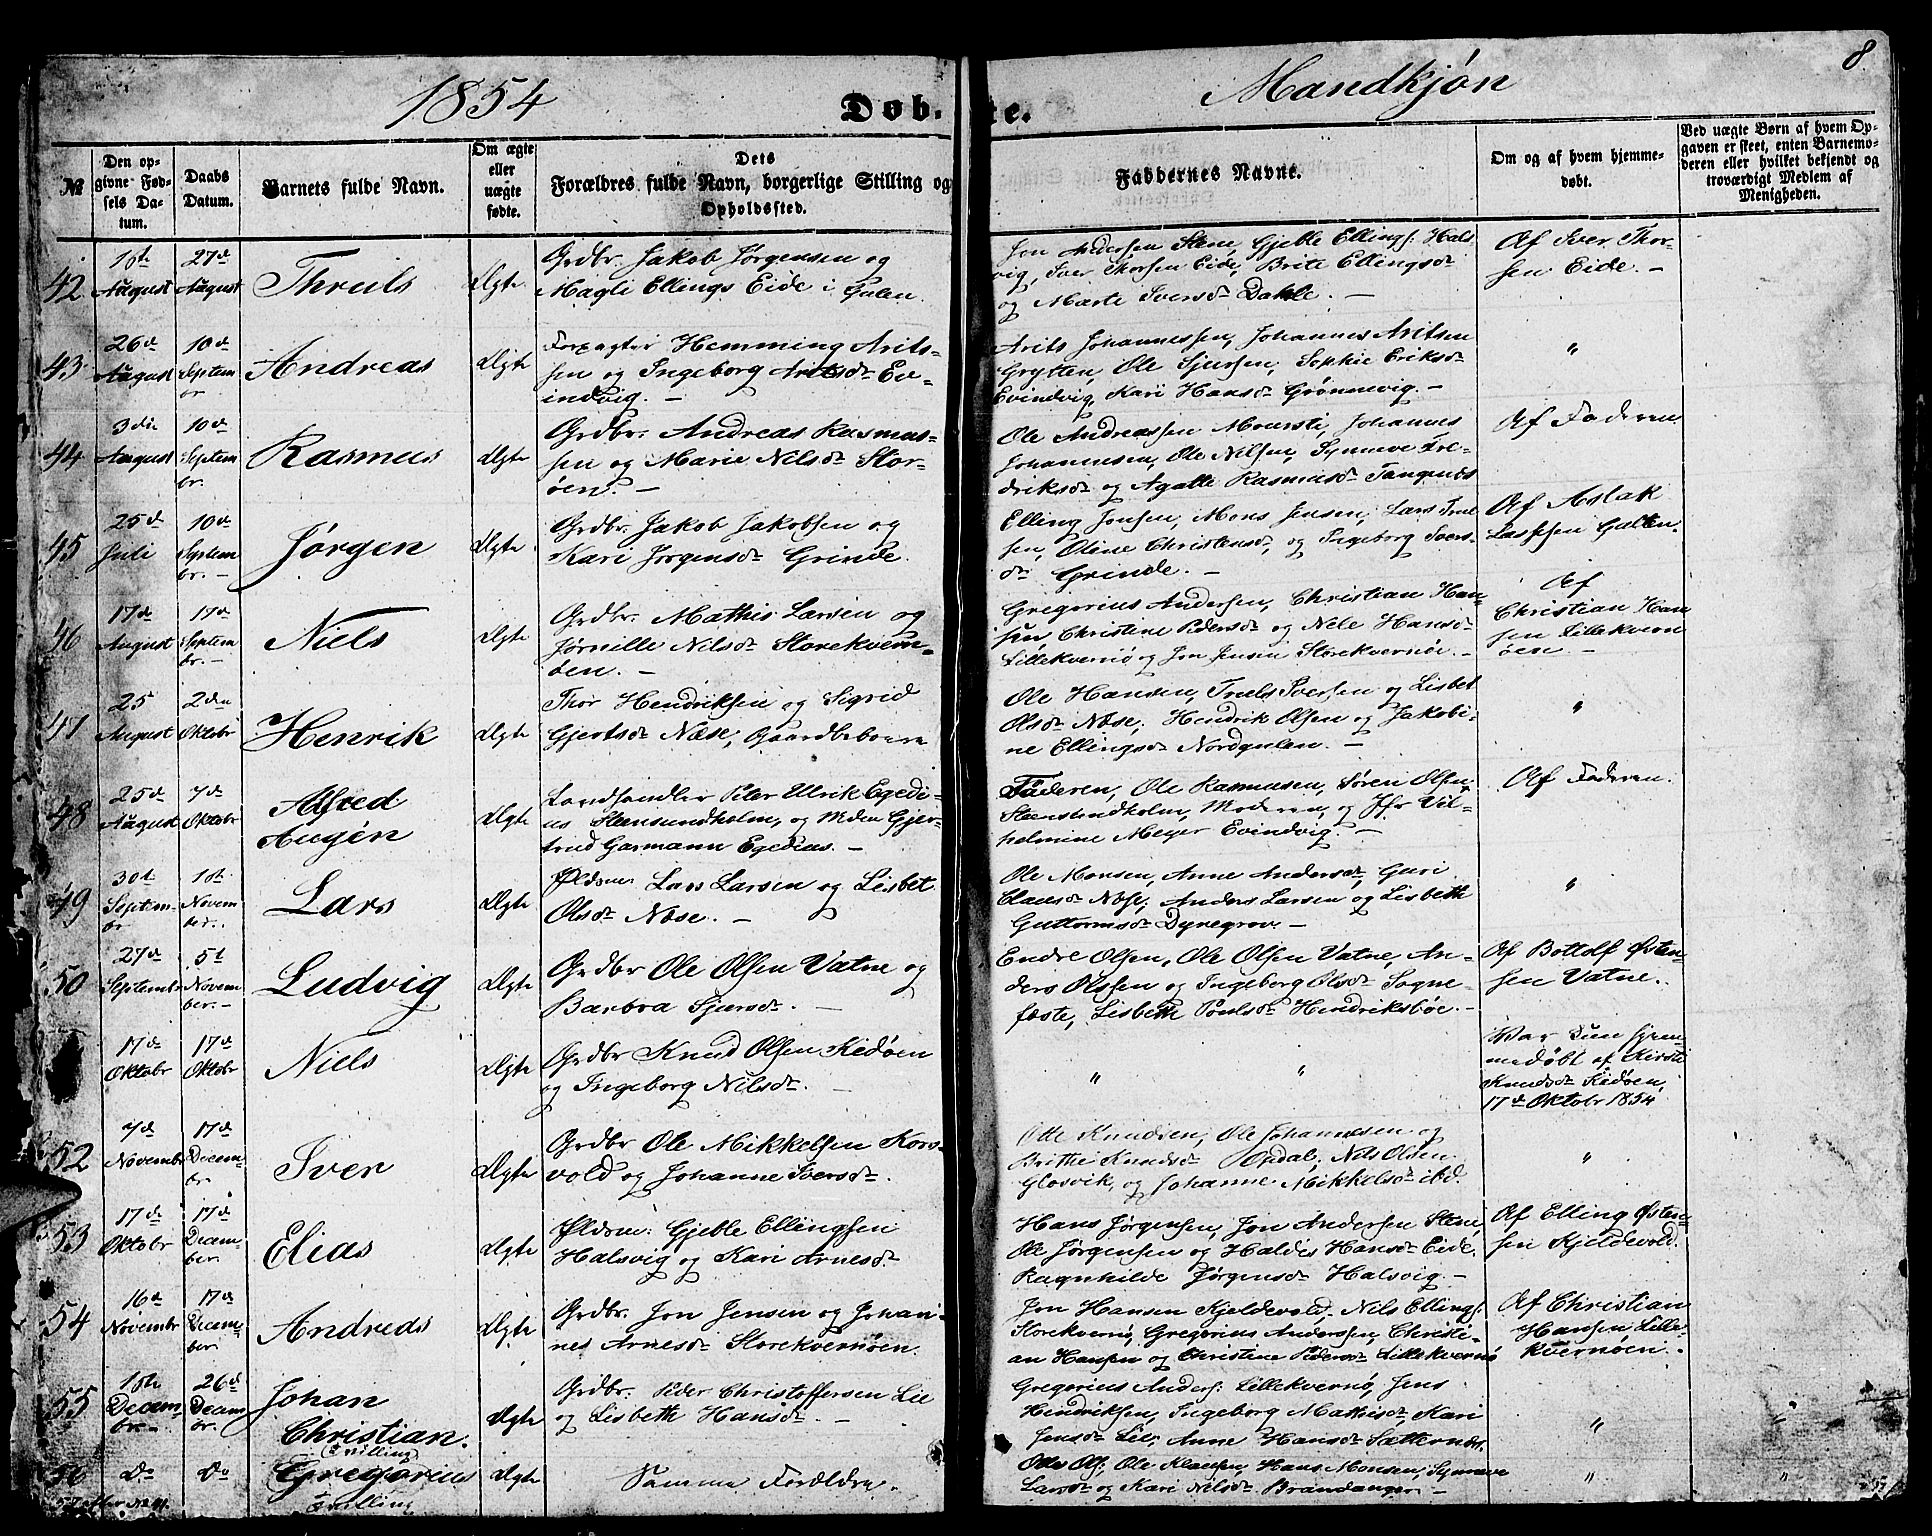 8.
1854
Døb.
te.
Mandkjøn
№
Den op-
givne Fød-
sels Da-
tum.
Daabs
Datum.
Barnets fulde Navn.
Om ægte
eller
uægte
fødte.
Dets
Forældres fulde Navn, borgerlige Stilling og
Opholdssted.
Faddernes Navne.
Om og af hvem hjemme-
døbt.
Ved uægte Børn af hvem Op-
gaven er skeet, enten Barnemo-
deren eller hvilket bekjendt og
troværdigt Medlem af
Menigheden.
42
August
27de
August
Ægte
Grdbr. Jakob Jørgensen og
Magli Ellings Eide i Gulen.
Jon Andersen Stene, Gjeble Ellings: Hals
vig, Iver Thorsen Eide, Brite Ellingsdr
og Marte Iversdr Dahle. —
Af Iver Thor-
sen Eide. —
43
26de
August
10de
Septem
br
Andreas
Ægte
Forpagter Hemming Arits-
sen og Ingeborg Aritsdr Ev-
indvig. —
Arits Johannessen, Johannes Aritsen
Grytten, Ole Sjursen, Sophie Eriksdr
Evindvig, Kari Hansdr Grønnevig. —
"
44
3die
August
10de
Septem
br.
Rasmus
Ægte
Grdbr. Andreas Rasmus-
sen og Marie Nilsdr Stor-
øen. —
Ole Andreassen Johannes
Johannesen, Ole Nilsen, Synneve Fre-
driksdr og Agatte Rasmusdr Tangenæs
Af Faderen
45
25de
Juli
10de
Septem
br. —
Jørgen
Ægte
Grdbr. Jakob Jakobsen og
Kari Jørgensdr Grinde.
Elling Jonsen, Mons Jensen, Lars
sen, Oline Christensdr, og Ingeborg Ivers-
dr Grinde. —
Af Aslak
Lassesen
46
17de
August
17de
Septem
br. —
Niels
Ægte
Grdbr. Mathis Larsen og
Nilsdr Storekvern-
øen. —
Gregorius Andersen, Christian Han-
sen, Christine Pedersdr og Nele Hansdr
Lillekvernø og Jon Jensen Storekvernøe. —
Af
Christian Han
sen Lillekvern
øen. —
47
25
August
2den
Oktobr
Henrik
Ægte
Thor Hendriksen og Sigrid
Gjertsdr Næse, Gaardbeboere
Ole Hansen, Truls Iversen og Lisbet
Olsdr Næse, Hendrik Olsen og Jakobi-
ne Ellingsdr Nordgulen. —
"
48
25de
August
7de
Oktobr
Alfred
Augén
Ægte
Landhandler Peter Ulrik Egedi-
us Steensundholm, og Mden Gjer-
trud Garmann Egedius. —
Faderen, Ole Rasmusen, Søren Olsen,
Steensundholm, Moderen, og Jfr Vil-
helmine Meyer Evindvig. —
Af Faderen.
49
30te
Septem-
br
1ste
Novem
ber.
Lars
Ægte
Lars Larsen og Lisbet
Olsdr Næse. —
Ole Monsen, Anne Andersdr, Guri
Claesdr Næse, Anders Larsen og Lisbeth
Guttormsdr Dyregrov —
"
50
27de
Septembr
5te
Novem
ber. —
Ludvig
Ægte
Grdbr Ole Olsen Vatne og
Barbra Sjursdr. —
Endre Olsen, Ole Olsen Vatne, An-
ders Olssen og Ingeborg Olsdr Sogne-
feste, Lisbeth Poulsdr Hendriksbøe. —
Af Bottolf Østen-
sen Vatne.
17de
Oktobr
17de
Oktobr
Niels
Ægte
Grdbr Knud Olsen Kidøen
og Ingeborg Nilsdr.
" "
Var kun hjem
medøbt af Kirsti
Knudsdr Kidøen,
17de Oktobr 1854
52
7de
Novembr
17de
Decem-
br.
Iver
Ægte
Grdbr Ole Mikkelsen Kors-
vold og Johanne Iversdr.
Otte Knudsen, Ole Johannesen og
Brithe Knudsdr Opdal, Nils Olsen
Glosvik, og Johanne Mikkelsdr ibd.
"
53
17de
Oktobr
17de
Decem-
ber.
Elias
Ægte
Gjeble Ellingsen
Halsvig og Kari Arnesdr
Hans Jørgensen, Jon Andersen Stene,
Ole Jørgensen og Haldis Hansdr Eide,
Ragnhilde Jørgensdr Halsvig. —
Af Elling Østen-
sen Kjeldevold.
54
16de
Novembr
17de
Decem-
ber.
Andreas
Ægte
Grdbr. Jon Jensen og Johan-
nes Arnesdr Storekvernøen.
Jon Hansen Kjeldevold, Nils Ellings:
Storekvernø, Gregorius Anderssen, Christi-
an Hansen og Christine Pedersdr Lillekvernø
Af Christian
Hansen Lille-
kvernøen. —
55
1ste
Decem-
br. —
26de
Decem
br.
Johan
Christian.
(Tvilling)
Ægte
Grdbr. Peder Christoffersen Lie
og Lisbeth Hansdr. —
Gregorius Anders: Lillekvernø, Jens
Hendriksen, Ingeborg Mathisdr Kari
Jensdr Lie, Anne Hansdr Sætternæs.
"
56
Do
Do
Gregorius
Tvilling
Ægte
Samme Forældre.
Otte Ols:, Ole Klausen, Hans Monsen, Synneve
Larsdr og Kari Nilsdr Brandanger. —
"
"
57 efter No 41.